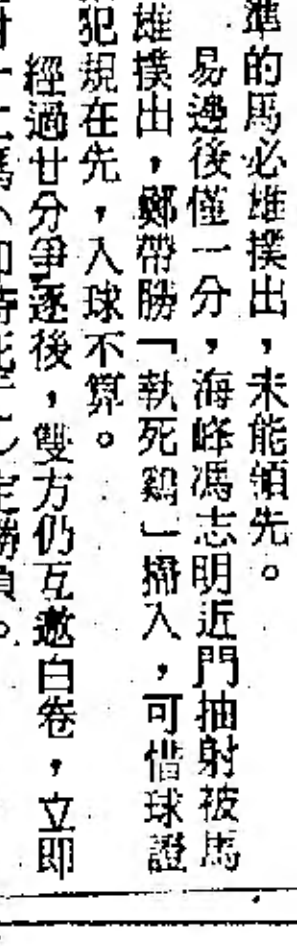 準的馬必雄撲出，未能領先。
易邊後僅一分，海峰馮志明近門抽射被馬
雄撲出，鄭帶勝「執死鷄」掃入，可惜球證
犯規在先，入球不算。
經過廿分爭逐後，雙方仍互邀白卷，立即